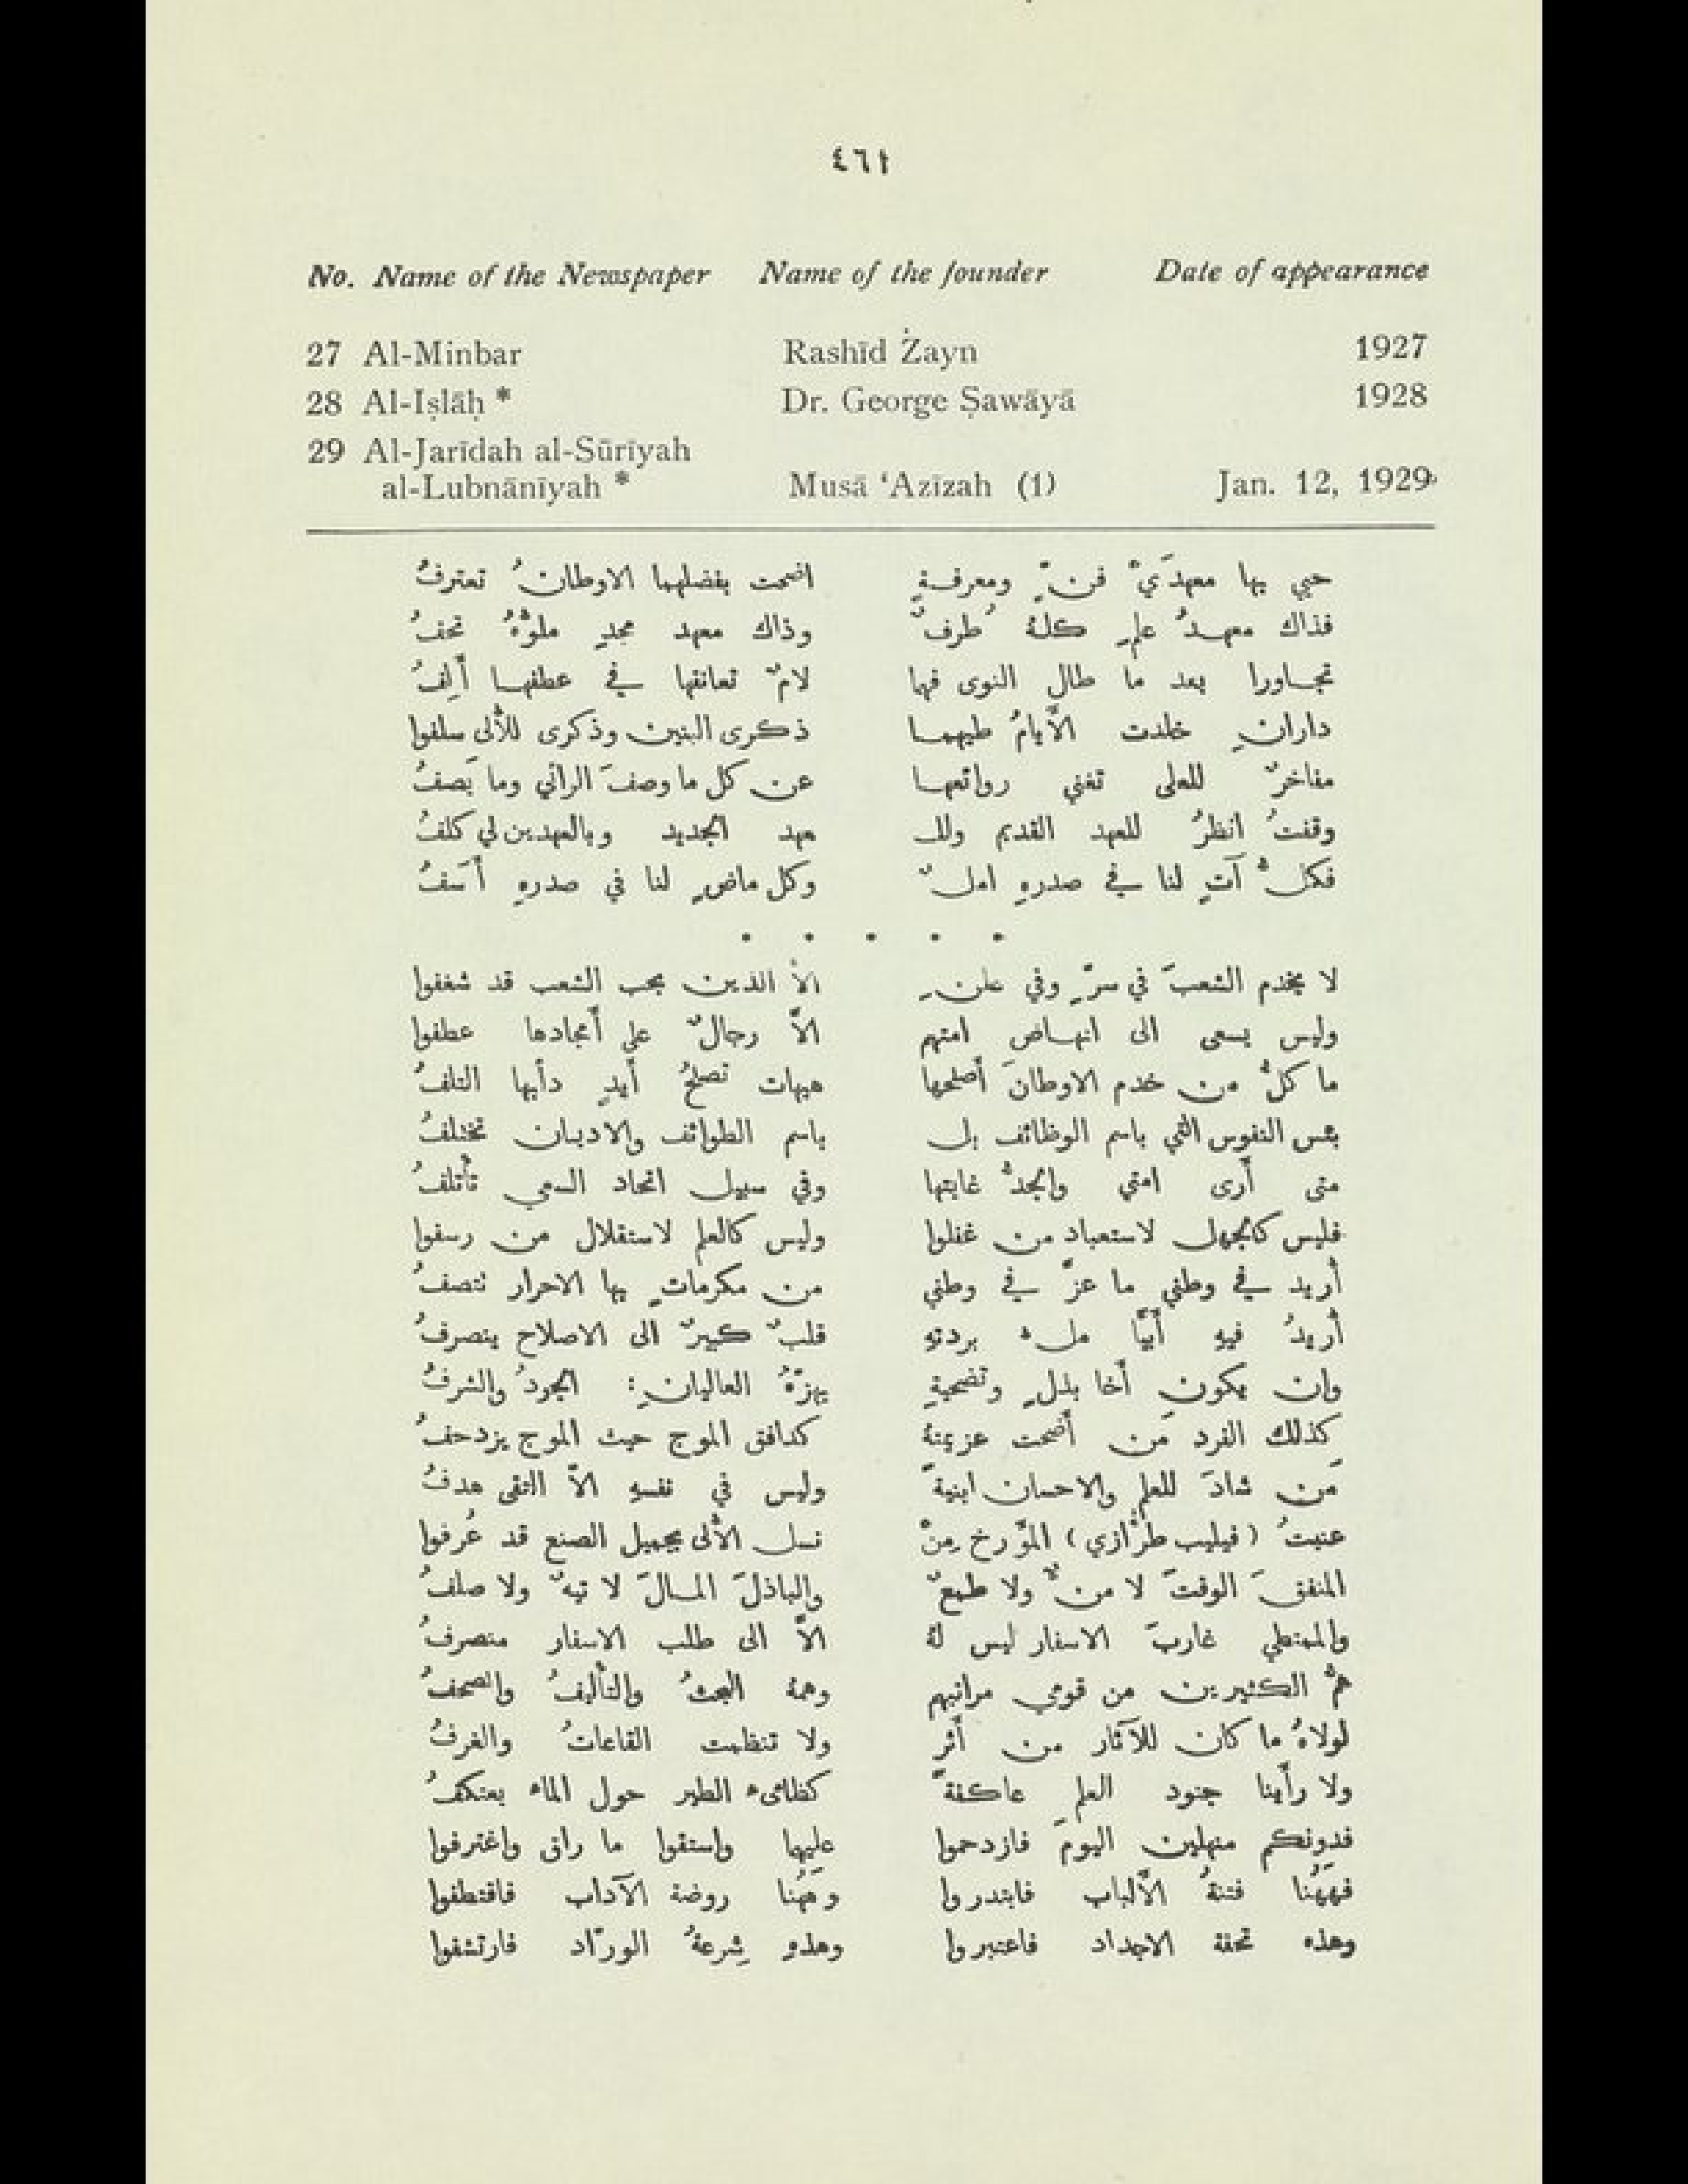 ٤٦١
No. Name of the Newspaper Name of the founder Date of appearance
27 Al-Minbar Rashīd Żayn 1927
28 Al-Iṣlāḥ * Dr. George Ṣawāyā 1928
29 Al-Jarīdah al-Sūrīyah
al-Lubnānīyah * Musā ‘Azīzah (1) Jan. 12, 1929
حيي بها معهدَيْ فنٍّ ومعرفةٍ اضحت بفضلهما الاوطانُ تعترفُ
فذاك معهدُ علمٍ كلهُ طرفٌ وذاك معهد مجدٍ ملوُّهُ تحفُ
تجاورا بعد ما طال النوى فهما لامٌ تعانقها في عطفها أَلِفُ
دارانِ خلدت الأَيامُ طيهما ذكرى البنين وذكرى للأُلى سلفوا
مفاخرٌ للعلى تغني روائعها عن كل ما وصفَ الرائي وما يَصفُ
وقفتُ انظرُ للعهد القديم ولل عهد الجديد وبالعهدين لي كلفُ
فكلُّ آتٍ لنا في صدرهِ املٌ وكل ماضٍ لنا في صدرهِ أَسَفُ
• • • • •
لا يخدم الشعبَ في سرٍّ وفي علنٍ الاَّ الذين بحب الشعب قد شغفوا
وليس يسعى الى انهاض امتهم الاَّ رجالٌ على أَمجادها عطفوا
ما كلُّ من خدم الاوطانَ أَصلحها هيهات تصلحُ أَيدٍ دأبها التلفُ
بئس النفوس التي باسم الوظائف بل باسم الطوائف والاديان تختلفُ
متى أَرى امتي والجدُّ غايتها وفي سبيل اتحاد السعي تأتلفُ
فليس كالجهل لاستعباد من غفلوا وليس كالعلم لاستقلال من رسفوا
أُريد في وطني ما عزَّ في وطني من مكرماتٍ بها الاحرار تتصفُ
أُريدُ فيهِ أَبيًّا ملء بردتهِ قلبٌ كبيرٌ الى الاصلاح ينصرفُ
وان يكون أَخا بذلٍ وتضحيةٍ يهزّهُ العاليانِ: الجودُ والشرفُ
كذلك الفرد مَن أَضحت عزيمتهُ كدافق الموج حيث الموج يزدحفُ
مَن شادَ للعلمِ والاحسان ابنيةً وليس في نفسهِ الاَّ التقى هدفُ
عنيتُ (فيليب طرَّازي) المؤرخ مِنْ نسل الأُلى بجميل الصنع قد عُرفوا
المنفقَ الوقتَ لا منٌّ ولا طمعٌ والباذلَ المالَ لا تيهٌ ولا صلفُ
والممتطي غاربَ الاسفار ليس لهُ الاَّ الى طلب الاسفار منصرفُ
همُّ الكثيرين من قومي مراتبهم وهمهُ البحثُ والتأليفُ والصحفُ
لولاهُ ما كان للآثار من أَثرٍ ولا تنظمت القاعاتُ والغرفُ
ولا رأَينا جنود العلمِ عاكفةً كظامىء الطير حول الماء يعتكفُ
فدونكم منهلين اليومَ فازدحموا عليهما واستقوا ما راق واغترفوا
فهَهُنا فتنةُ الأَلباب فابتدروا وهَهُنا روضة الآداب فاقتطفوا
وهذه تحفة الاجداد فاعتبروا وهذهِ شِرعةُ الورّاد فارتشفوا